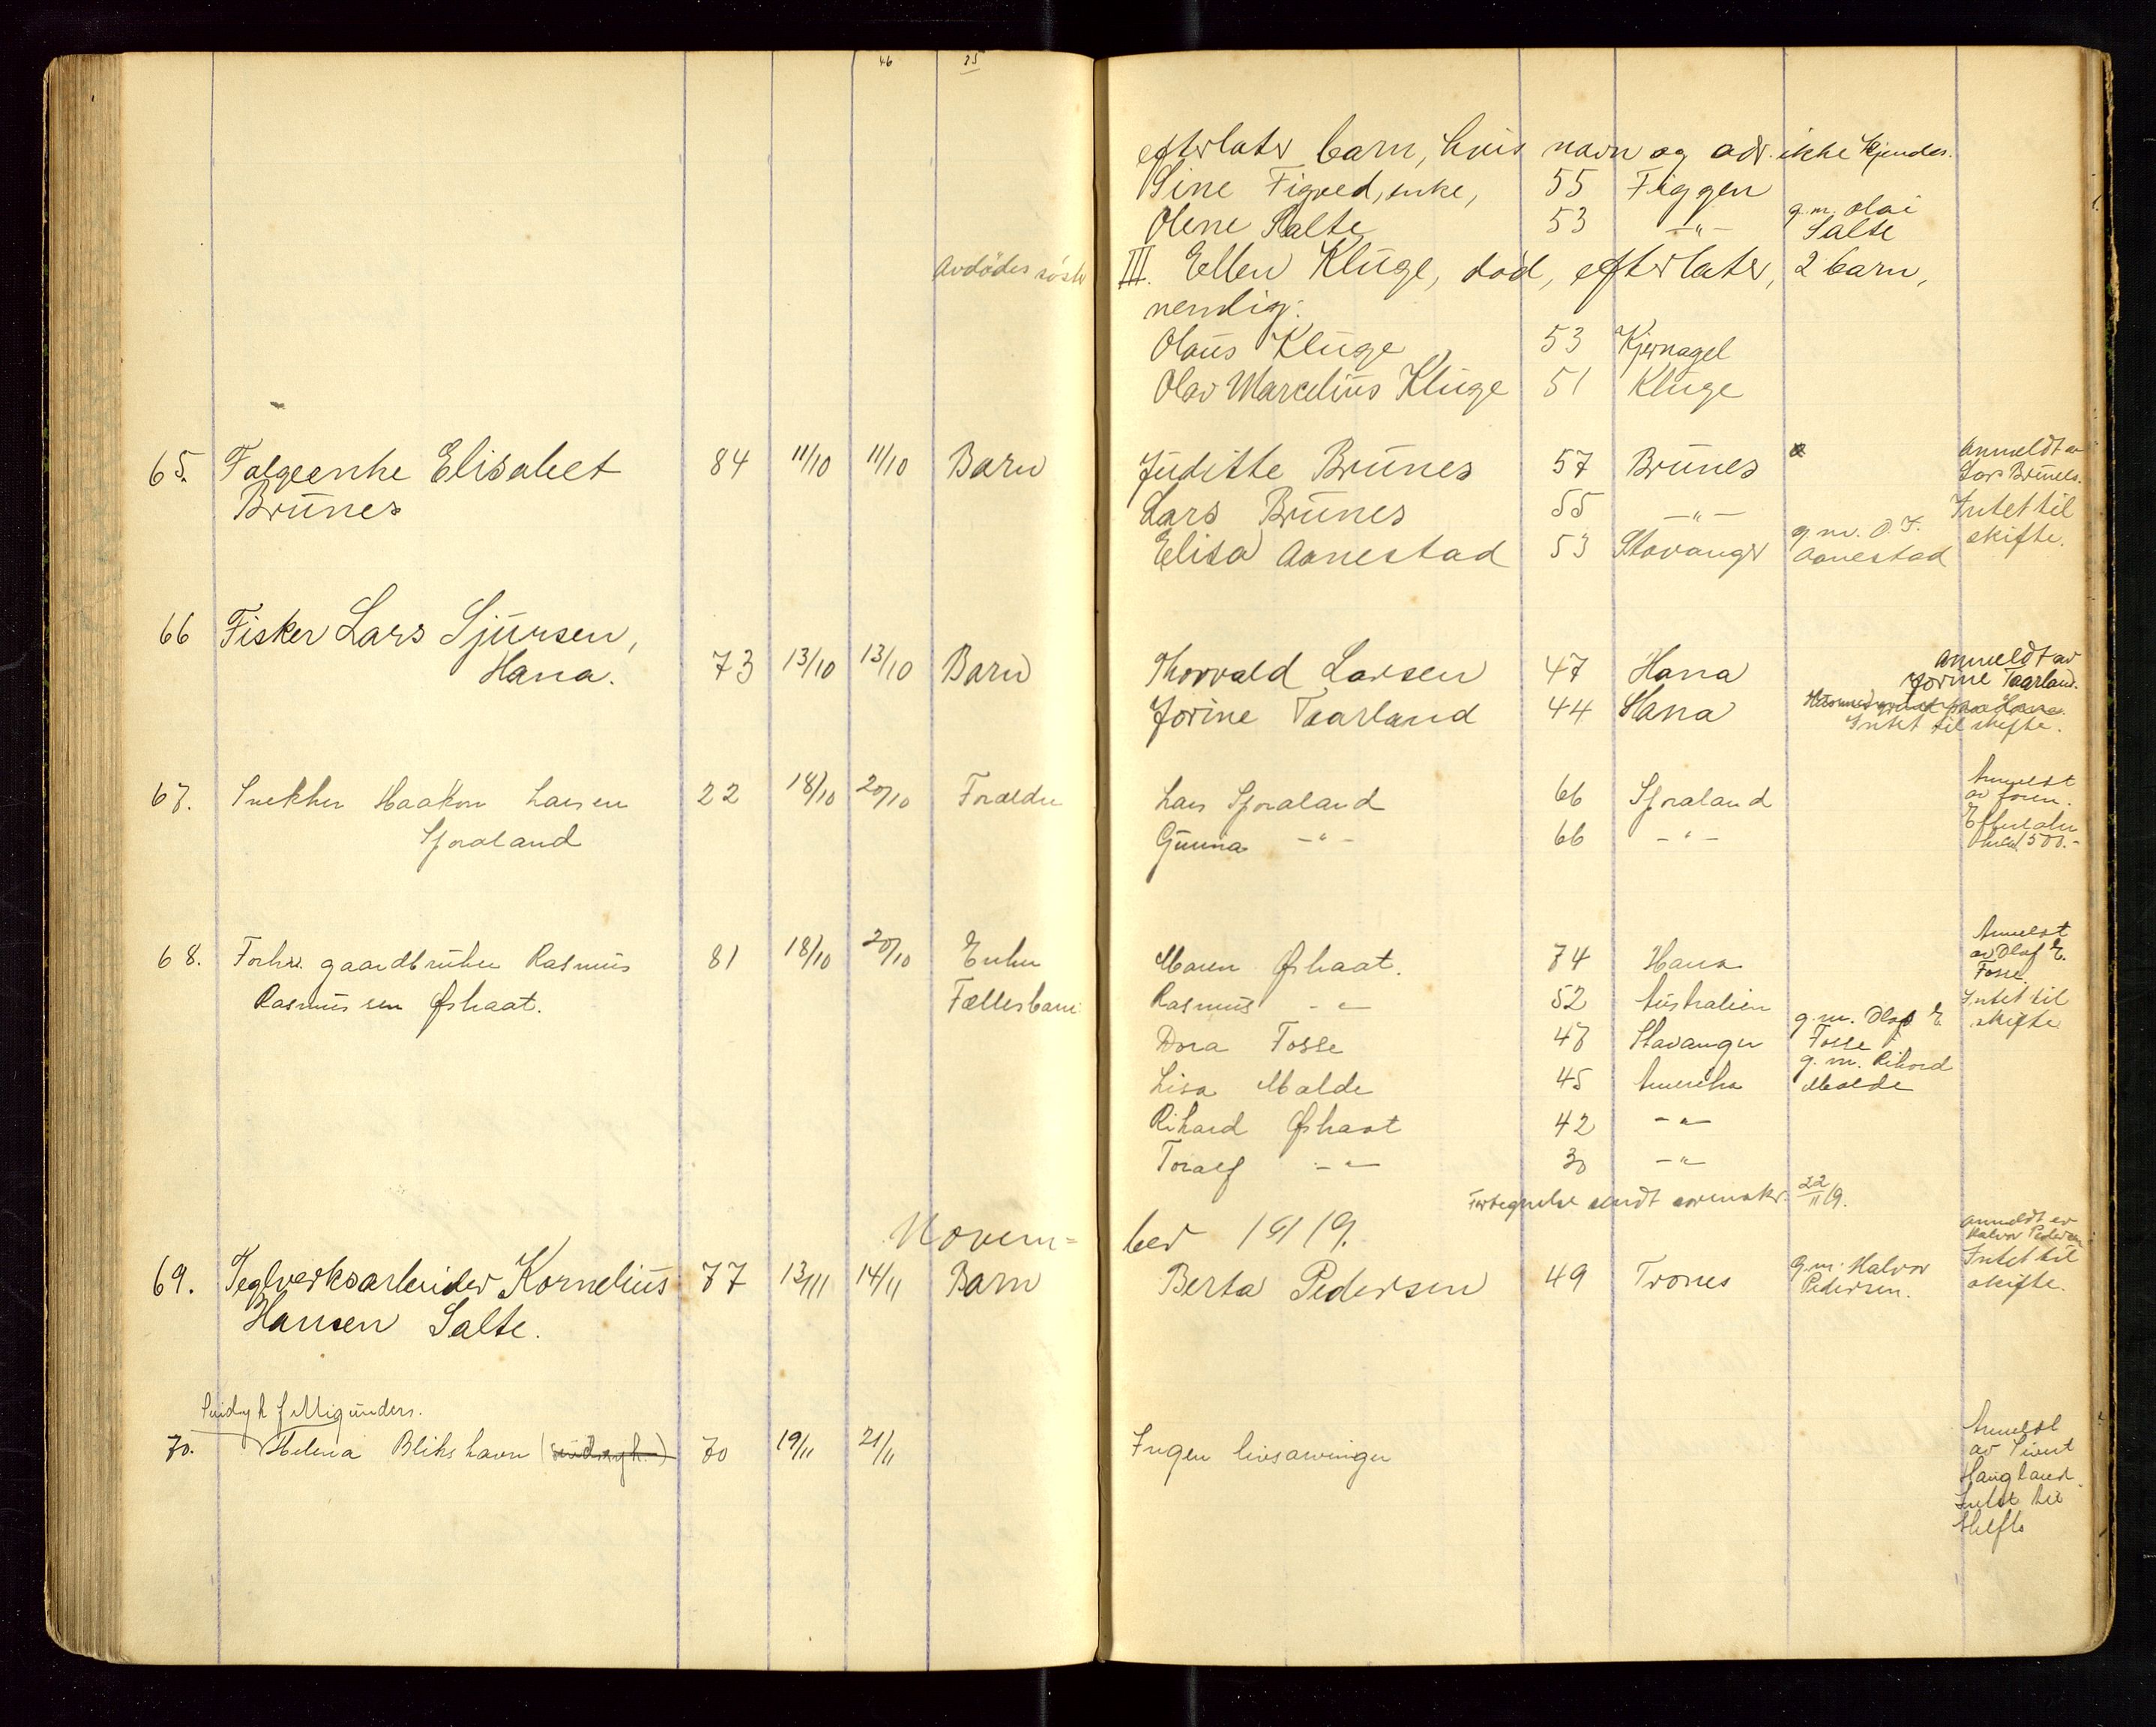 46 25
efterlater barn, hvis navn og adr. ikke kjendes.
Sine Figved, enke, 55 Figgen
Olene Salte 53 -"- g.m. Olai Salte
Avdödes söster III. Ellen Kluge, död, efterlater, 2 barn,
nemlig:
Olaus Kluge 53 Kjernagel
Olav Marcelius Kluge 51 Kluge
65. Folgeenke Elisabet 84 11/10 11/10 Barn Juditte Brunes 57 Brunes Anmeldt av
Brunes Lars Brunes 55 -"- Lars Brunes. Intet til
Elisa Aanestad 53 Stavanger g.m. O. T. Aanestad skifte.
66 Fisker Lars Sjursen,
Hana. 73 13/10 13/10 Barn Thorvald Larsen 47 Hana Anmeldt av
Jorine Taarland.
Jorine Taarland 44 Hana
Intet til skifte.
67. Snekker Haakon Larsen 22 18/10 20/10 Forældre Lars 66 Anmeldt
av foren.
Gunna -"- 66 -"- 500.-
68. Forhv. gaardbruker Rasmus 81 18/10 20/10 Enke Maren 74 Hana Anmeldt
av Olaf E. Fosse.
Rasmussen Fællesbarn Rasmus -"- 52 Australien Intet til
skifte
Dora Fosse 47 Stavanger g.m. Olaf E. Fosse
Lisa Malde 45 Amerika g.m. Rikard Malde
Rikard 42 -"-
Toralf -"- 30 -"-
Fortegnelse sendt sorenskr. 22/11 19.
Novem= ber 1919.
69. Teglverksarbeider Kornelius 77 13/11 14/11 Barn Berta Pedersen 49 Trones g.m. Halvor Pedersen. Anmeldt av
Halvor Pedersen
Intet til
skifte.
Hansen Salte.
70. Helena Blikshavn 70 19/11 21/11 Ingen livsarvinger Anmeldt
av Sivert
Haugland
Intet til
skifte